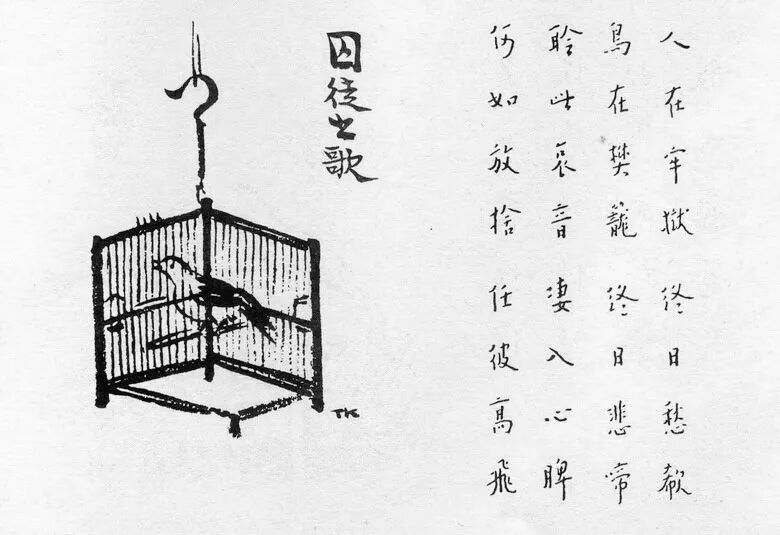 囚徒之歌
人在牢獄終日愁欷
鳥在樊籠終日悲啼
聆此哀音凄入心脾
何如放捨任彼高飛
TK